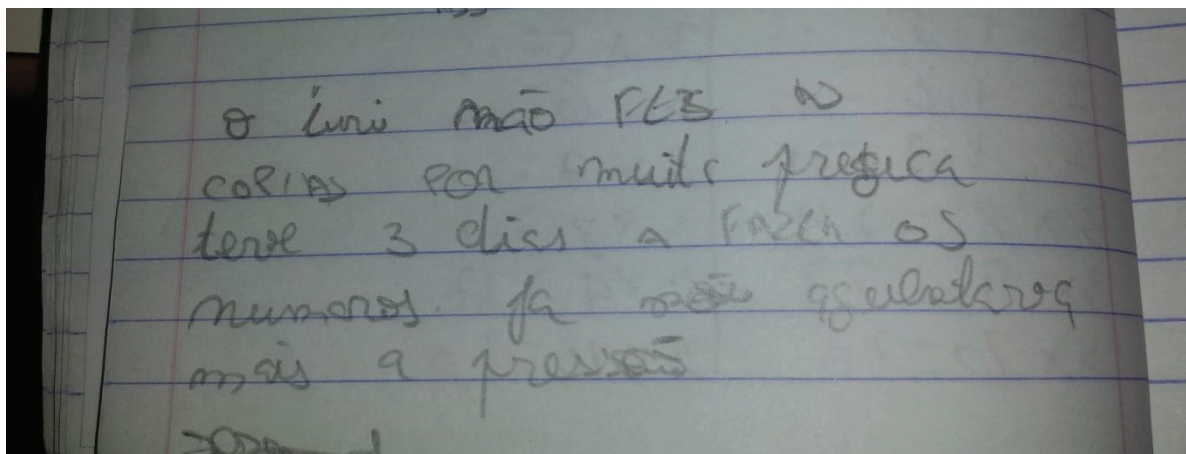 O Iuri não FES
COPIAS POR muita preguica
teve 3 dias a FAZER OS
numeros. Ja não aguentava
mais a pressão